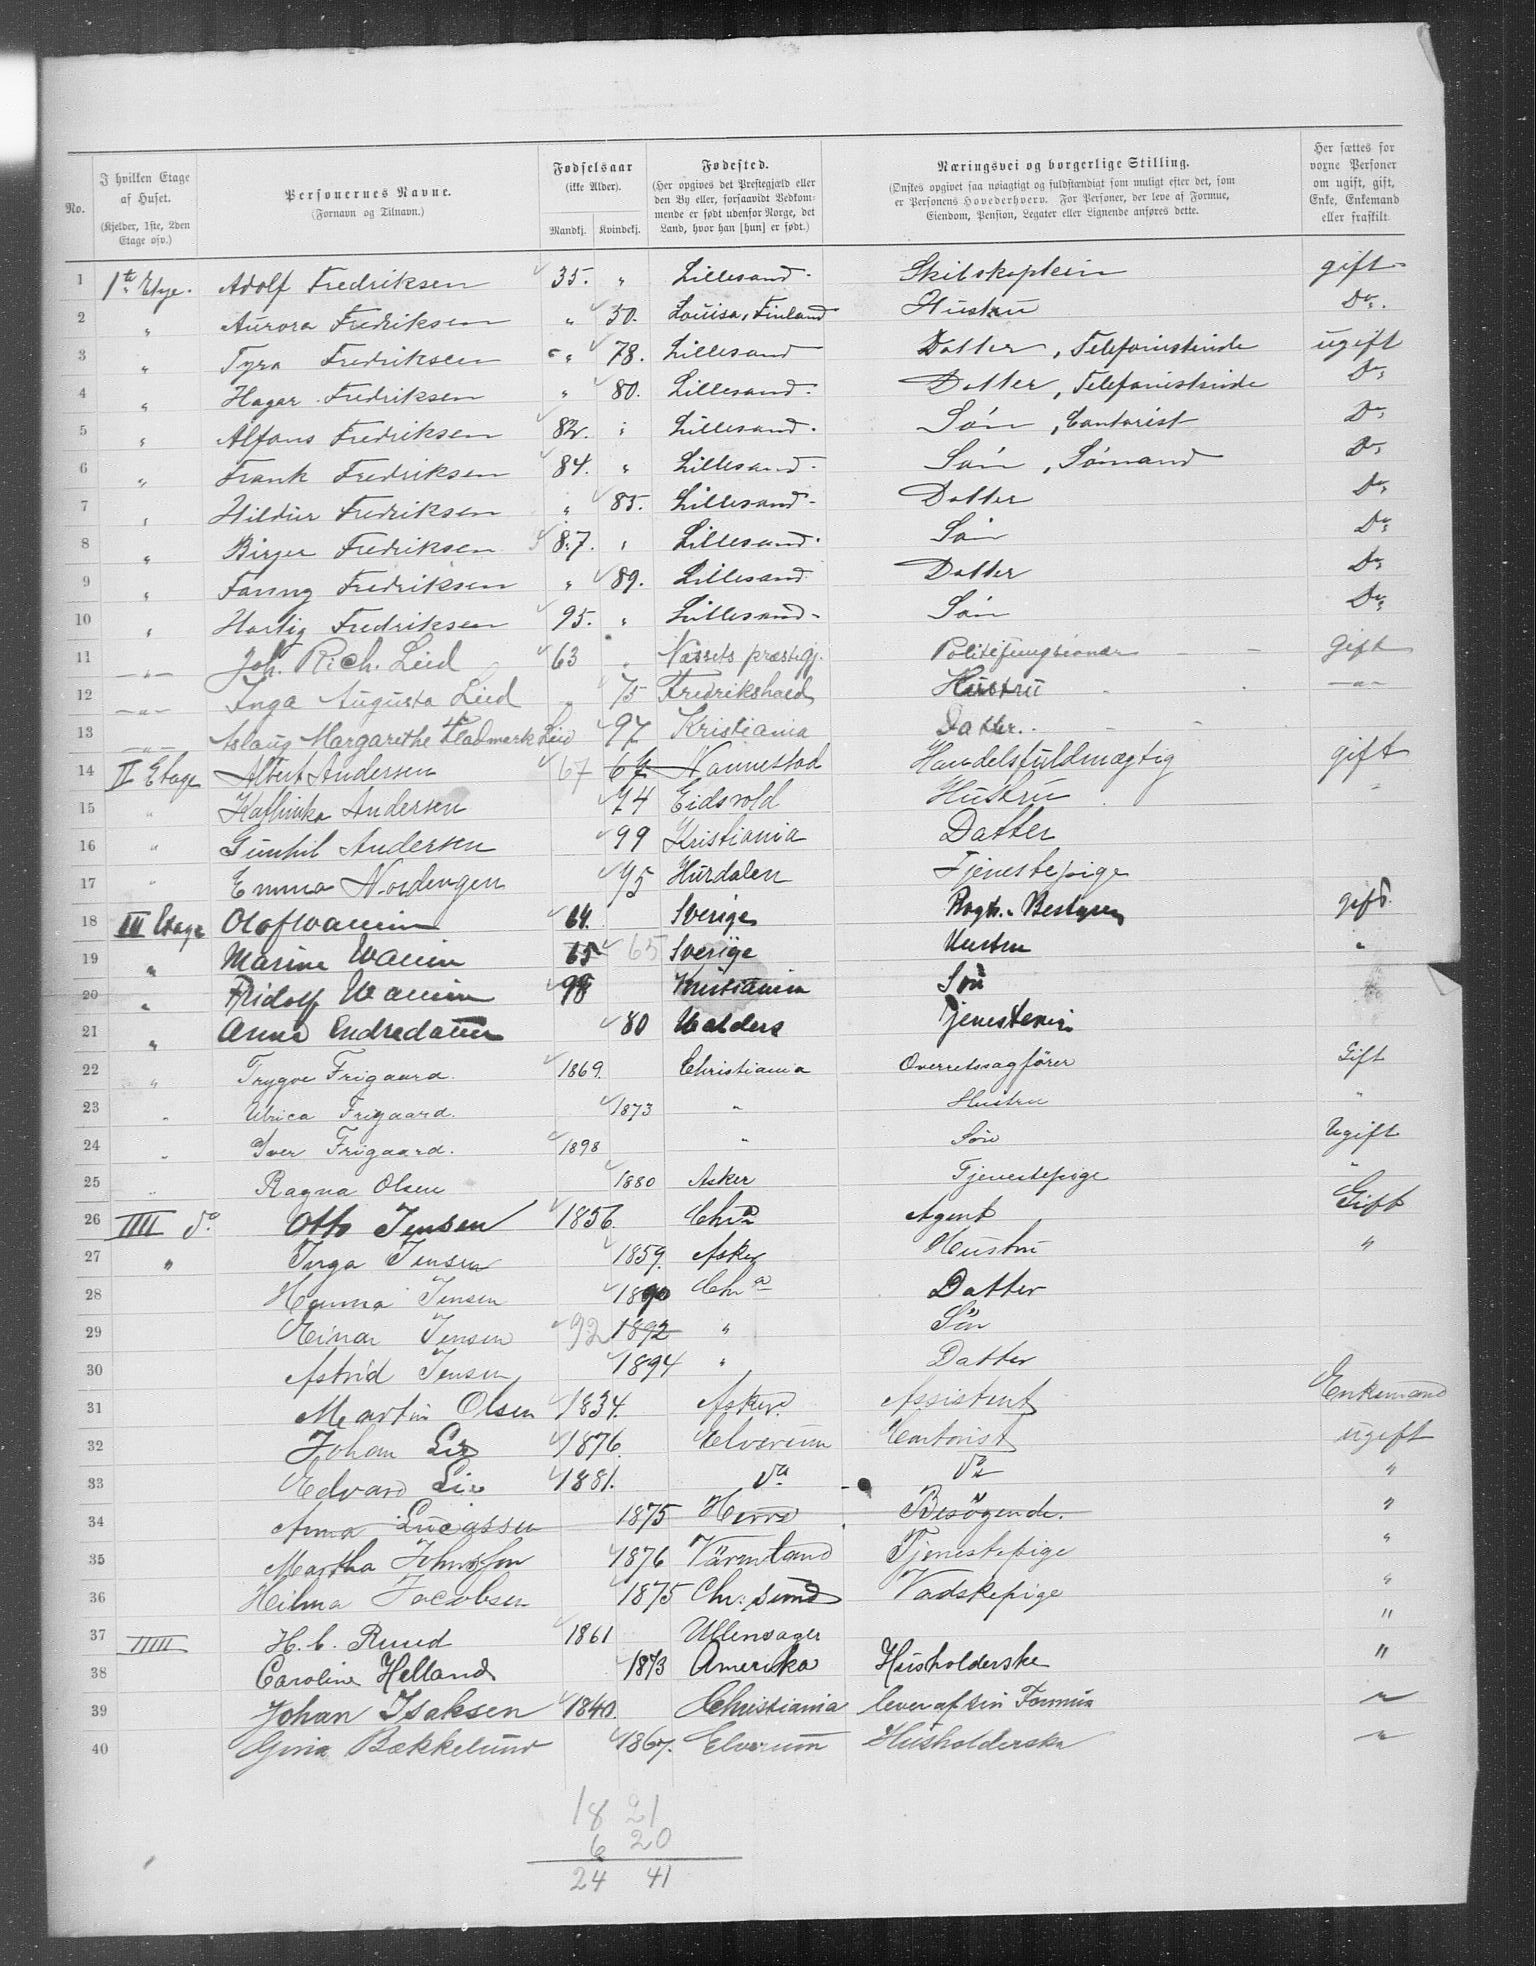 No. | I hvilken Etage af Huset. (Kjelder, 1ste, 2den Etage osv.) | Personernes Navne. (Fornavn og Tilnavn.) | Fødselsaar (ikke Alder). Mandkj. Kvindekj. | Fødested. (Her opgives det Prestegjæld eller den By eller, forsaavidt Vedkommende er født udenfor Norge, det Land, hvor han [hun] er født.) | Næringsvei og borgerlige Stilling. (Ønskes opgivet saa nøiagtigt og fuldstændigt som muligt efter det, som er Personens Hovederhverv. For Personer, der leve af Formue, Eiendom, Pension, Legater eller Lignende anføres dette. | Her sættes for voxne Personer om ugift, gift, Enke, Enkemand eller fraskilt.
1 1te Etge. Adolf Fredriksen 35. " Lillesand. Skibskaptein gift
2 " Aurora Fredriksen " 50. Louisa, Finland Hustru Do.
3 " Tyra Fredriksen " 78. Lillesand Datter, Telefonistinde ugift
4 " Hagar Fredriksen " 80. Lillesand. Datter, Telefonistinde Do
5 " Alfons Fredriksen 82. " Lillesand. Søn, Contorist Do
6 " Frank Fredriksen 84. " Lillesand. Søn, Sømand Do
7 " Hildur Fredriksen " 85. Lillesand. Datter Do
8 " Birger Fredriksen 87. " Lillesand. Søn Do
9 " Fanny Fredriksen " 89. Lillesand Datter Do
10 " Hartig Fredriksen 95. " Lillesand. Søn Do
11 " Joh. Rich. Lied 63 " Næssets præstegj. Politifungtionær gift
12 " Inga Augusta Lied " 75 Fredrikshald Hustru "
13 " Aslaug Margarethe Fladmark Lied 97 Kristiania Datter.
14 II Etage Albert Andersen 67 67 Nannestad Handelsfuldmægtig gift
15 " Kathinka Andersen 74 Eidsvold Hustru "
16 " Gunhil Andersen 99 Kristiania Datter
17 " Emma Nordengen 75 Hurdalen Tjenestepige
18 III Etage Olof Wallin 64. Sverige Bestyrer gift.
19 " Marine Wallin 65 65 Sverige Hustru "
20 " Fridolf Wallin 98 Kristiania Søn
21 " Anne Endredatter 80 Valders
22 " Trygve Frigaard. 1869. Christiania Overretssagfører Gift
23 " Ulrica Frigaard. 1873 " Hustru "
24 " Iver Frigaard. 1898 " Søn Ugift
25 " Ragna Olsen 1880 Asker Tjenestepige "
26 IIII do Otto Jensen 1856. Chra Agent Gift
27 " Inga Jensen 1859. Asker Hustru "
28 Hanna Jensen 1890 Chra Datter
29 Einar Jensen 92 1892 " Søn
30 Astrid Jensen 1894 " Datter
31 Martin Olsen 1834. Asker. Assistent Enkemand
32 Johan Lie 1876. Elverum Contorist ugift
33 Edvard Lie 1881. do do "
34 Anna Lucassen 1875 Herre Besøgende. "
35 Martha Johnsson 1876 Värmland Tjenestepige "
36 Hilma Jacobsen 1875 Chr. sund Vadskepige "
37 IIIII H. C. Ruud 1861 Ullensager "
38 Caroline Helland 1873 Amerika Husholderske "
39 Johan Isaksen 1840. Christiania lever af sin Formue "
40 Gina Bækkelund 1867. Elverum Husholderska "
18 21
6 20
24 41